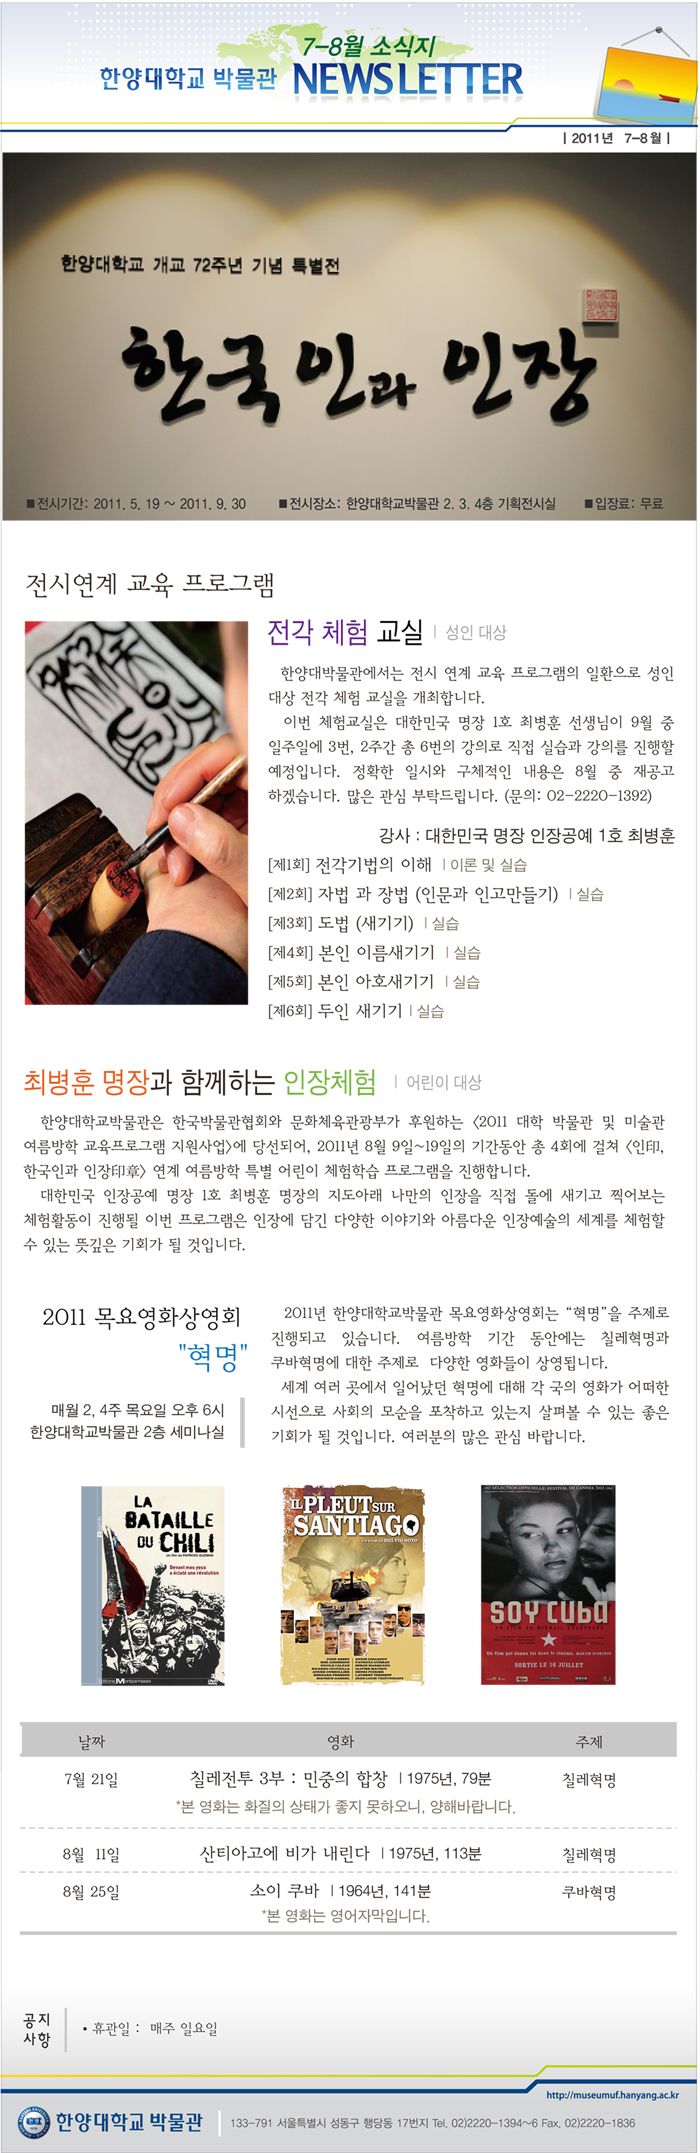 7-8월 소식지
한양대학교 박물관 NEWSLETTER
| 2011년 7-8월 |
한양대학교 개교 72주년 기념 특별전
한국인과 인장
■전시기간: 2011. 5. 19 ~ 2011. 9. 30 ■전시장소: 한양대학교박물관 2. 3. 4층 기획전시실 ■입장료: 무료
전시연계 교육 프로그램
전각 체험 교실 | 성인 대상
한양대박물관에서는 전시 연계 교육 프로그램의 일환으로 성인
대상 전각 체험 교실을 개최합니다.
이번 체험교실은 대한민국 명장 1호 최병훈 선생님이 9월 중
일주일에 3번, 2주간 총 6번의 강의로 직접 실습과 강의를 진행할
예정입니다. 정확한 일시와 구체적인 내용은 8월 중 재공고
하겠습니다. 많은 관심 부탁드립니다. (문의: 02-2220-1392)
강사 : 대한민국 명장 인장공예 1호 최병훈
[제1회] 전각기법의 이해 | 이론 및 실습
[제2회] 자법 과 장법 (인문과 인고만들기) | 실습
[제3회] 도법 (새기기) | 실습
[제4회] 본인 이름새기기 | 실습
[제5회] 본인 아호새기기 | 실습
[제6회] 두인 새기기 | 실습
최병훈 명장과 함께하는 인장체험 | 어린이 대상
한양대학교박물관은 한국박물관협회와 문화체육관광부가 후원하는 <2011 대학 박물관 및 미술관
여름방학 교육프로그램 지원사업>에 당선되어, 2011년 8월 9일~19일의 기간동안 총 4회에 걸쳐 <인印,
한국인과 인장印章> 연계 여름방학 특별 어린이 체험학습 프로그램을 진행합니다.
대한민국 인장공예 명장 1호 최병훈 명장의 지도아래 나만의 인장을 직접 돌에 새기고 찍어보는
체험활동이 진행될 이번 프로그램은 인장에 담긴 다양한 이야기와 아름다운 인장예술의 세계를 체험할
수 있는 뜻깊은 기회가 될 것입니다.
2011 목요영화상영회
"혁명"
매월 2, 4주 목요일 오후 6시
한양대학교박물관 2층 세미나실
2011년 한양대학교박물관 목요영화상영회는 “혁명”을 주제로
진행되고 있습니다. 여름방학 기간 동안에는 칠레혁명과
쿠바혁명에 대한 주제로 다양한 영화들이 상영됩니다.
세계 여러 곳에서 일어났던 혁명에 대해 각 국의 영화가 어떠한
시선으로 사회의 모순을 포착하고 있는지 살펴볼 수 있는 좋은
기회가 될 것입니다. 여러분의 많은 관심 바랍니다.
LA
BATAILLE
DU CHILI
Un film de PATRICIO GUZMAN
Devant mes yeux
a éclaté une révolution
Editions Montparnasse
IL PLEUT SUR
SANTIAGO
UN FILM DE HELVIO SOTO
SOY CUBA
SORTIE LE 16 JUILLET
날짜 영화 주제
7월 21일 칠레전투 3부 : 민중의 합창 | 1975년, 79분 칠레혁명
*본 영화는 화질의 상태가 좋지 못하오니, 양해바랍니다.
8월 11일 산티아고에 비가 내린다 | 1975년, 113분 칠레혁명
8월 25일 소이 쿠바 | 1964년, 141분 쿠바혁명
*본 영화는 영어자막입니다.
공지
사항
• 휴관일 : 매주 일요일
http://museumuf.hanyang.ac.kr
한양대학교 박물관 133-791 서울특별시 성동구 행당동 17번지 Tel. 02)2220-1394~6 Fax. 02)2220-1836